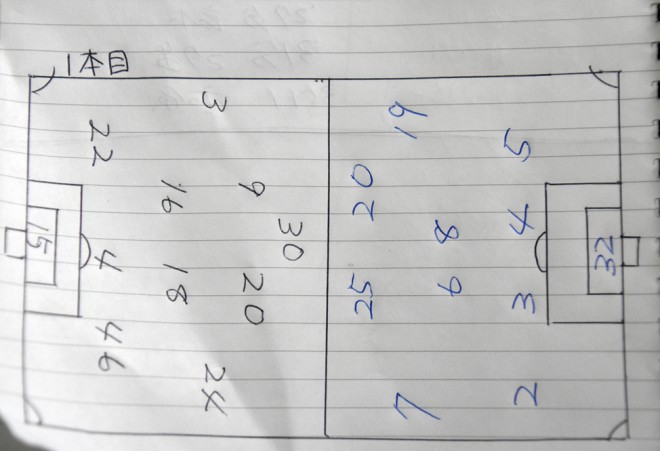 1本目
3
22
16
9
30
20
18
4
46
24
15
19
5
20
8
4
32
25
6
3
7
2